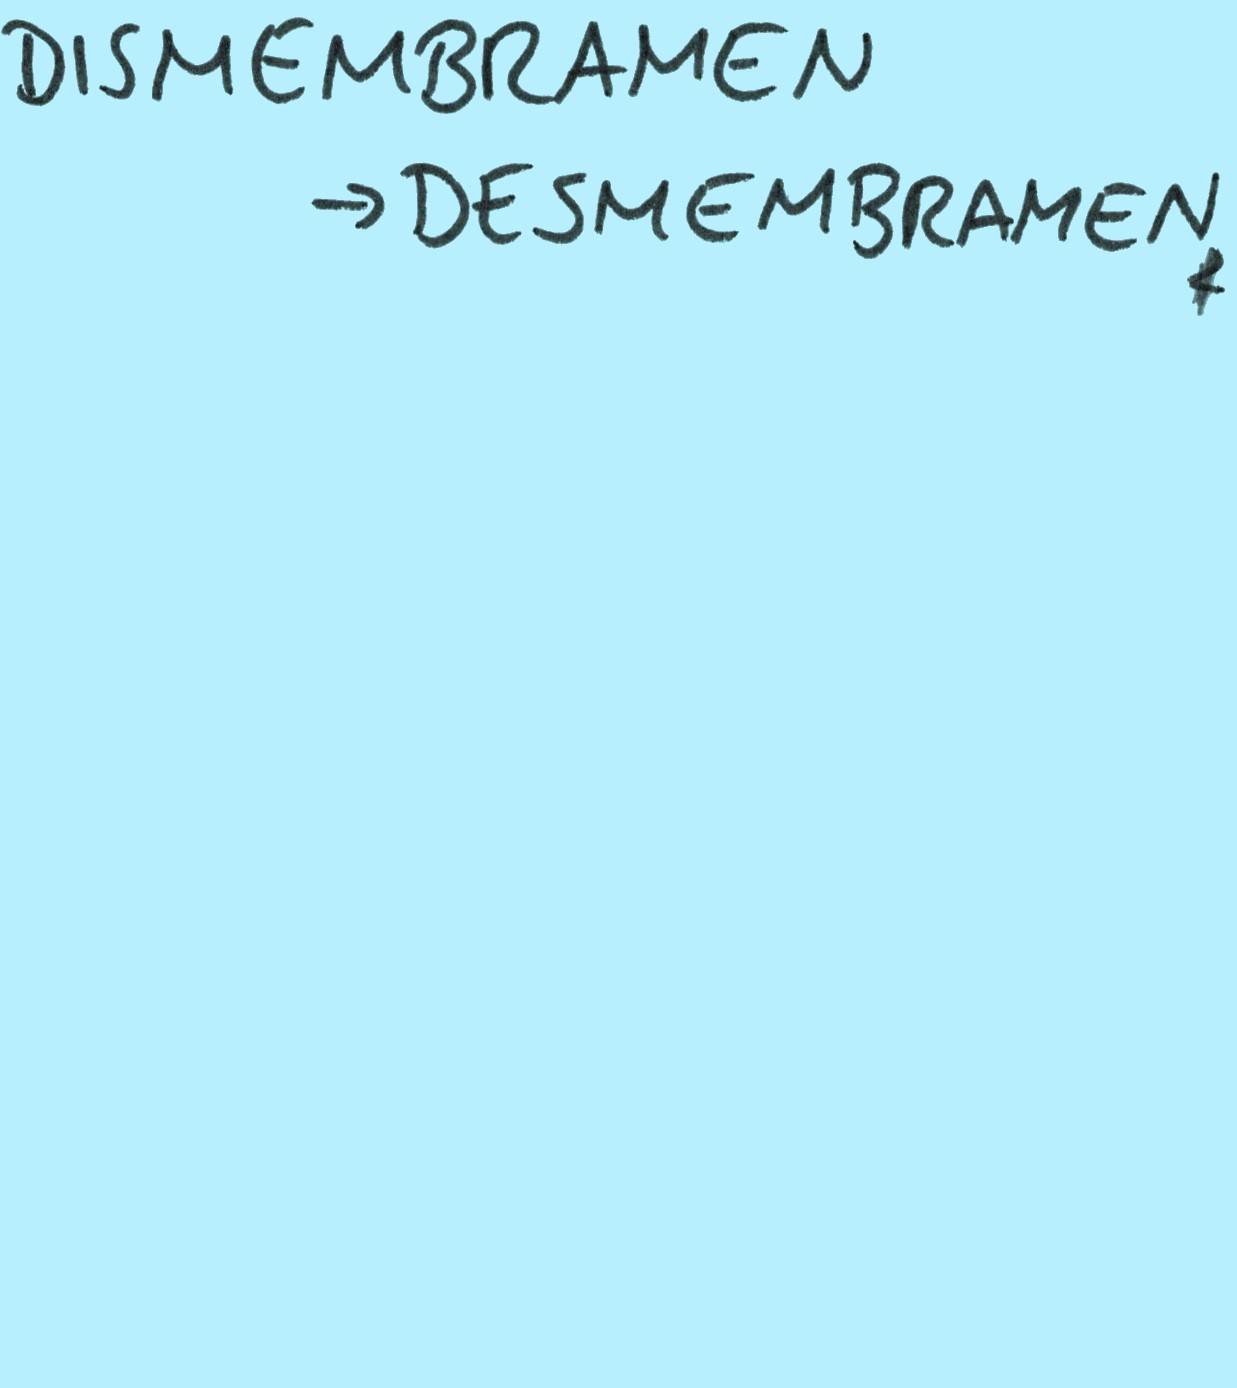 DISMEMBRAMEN
→ DESMEMBRAMEN